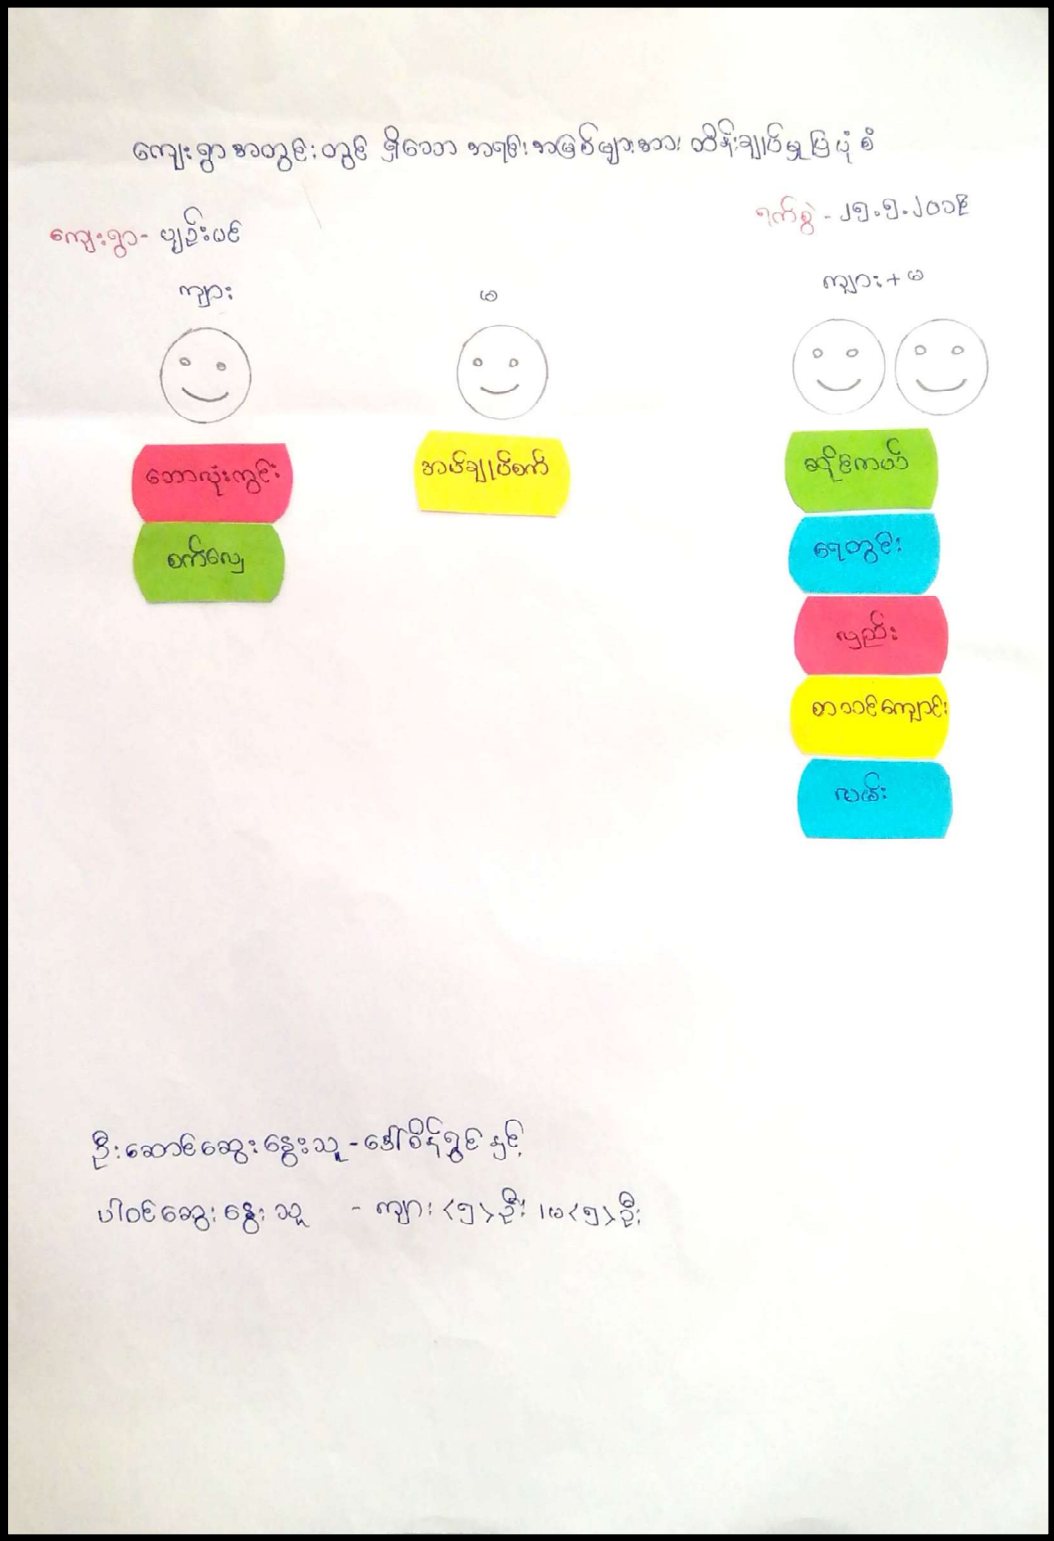 ကျေးရွာအတွင်းတွင် ရှိသော အရင်းအမြစ်များအား ထိန်းချုပ်မှုပြပုံစံ
ရက်စွဲ - ၂၅.၅.၂၀၁၆
ကျေးရွာ - ပျဉ်းပင်
ကျား
မ
ကျား + မ
ဘောလုံးကွင်း
စက်လှေ
အပ်ချုပ်စက်
ဆိုင်ကယ်
ရေတွင်း
လှည်း
စာသင်ကျောင်း
လမ်း
ဦးဆောင်ဆွေးနွေးသူ - ဒေါ်စိန်ရွှင် နှင့်
ပါဝင်ဆွေးနွေးသူ - ကျား <၅> ဦး ၊ မ <၅> ဦး